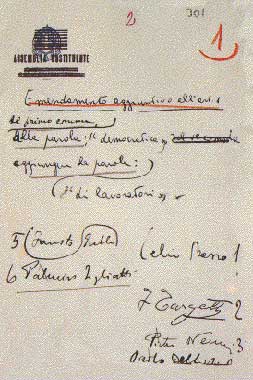 2 301
1
ASSEMBLEA COSTITUENTE
Emendamento aggiuntivo all'art. 1
di primo comma,
alla parola: "democratica"
aggiungere la parola:
("di lavoratori")
5 (Fausto Gullo)
Celio Basso 1
6 Palmiro Togliatti
F Targetti 2
Pietro Nenni 3